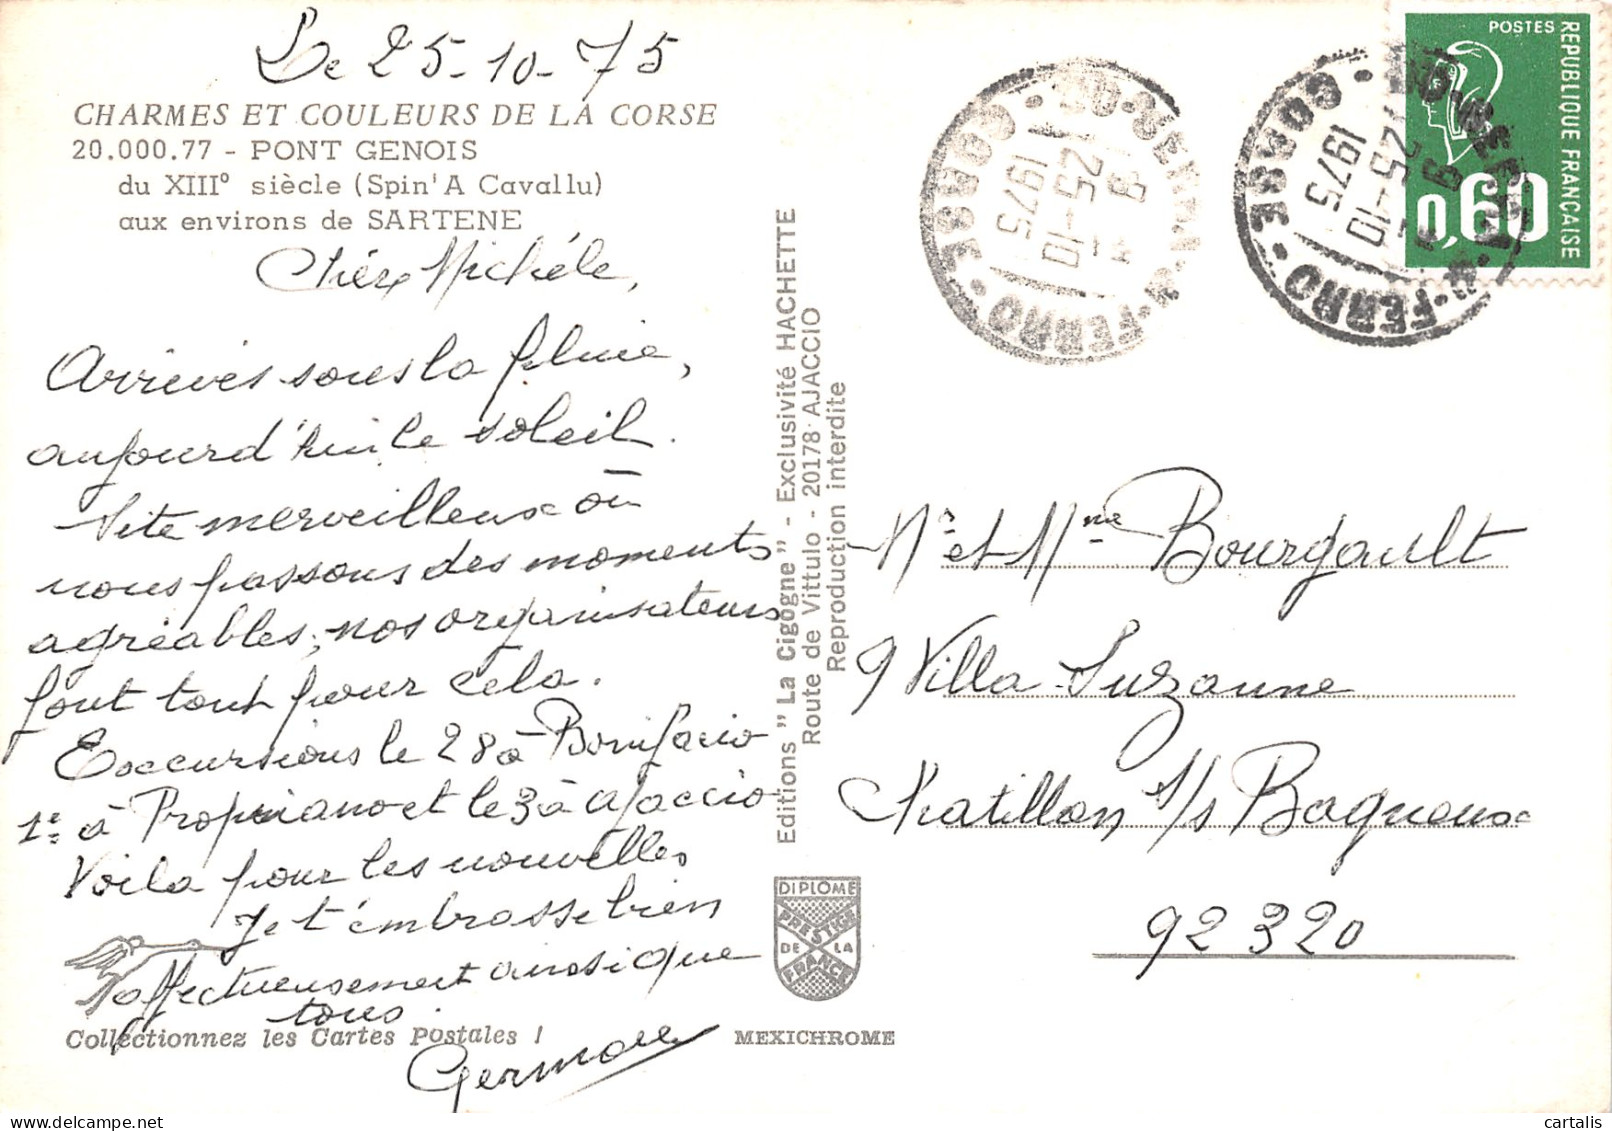 Le 25-10-75
CHARMES ET COULEURS DE LA CORSE
20.000.77 - PONT GENOIS
du XIII° siècle (Spin'A Cavallu)
aux environs de SARTENE
Chère Michéle,
Arrivés sous la pluie,
aujourd'hui le soleil.
Site merveilleux où
nous passons des moments
agréables, nos organisateurs
font tout pour cela.
Excursions le 28 à Bonifacio
1er à Propriano et le 3 à Ajaccio
Voila pour les nouvelles
Je t'embrasse bien
affectueusement ainsi que
tous.
Germaine
Collectionnez les Cartes Postales !
Editions "La Cigogne" - Exclusivité HACHETTE
Route de Vittulo - 20178 - AJACCIO
Reproduction interdite
DIPLOME
PRESTIGE
DE LA
FRANCE
MEXICHROME
9 H
25-10
1975
FERRO - CORSE
9 H
25-10
1975
FERRO - CORSE
POSTES
REPUBLIQUE FRANÇAISE
0,60
Mr et Mme Bourgault
9 Villa Suzanne
Chatillon s/s Bagneux
92320
cartalis